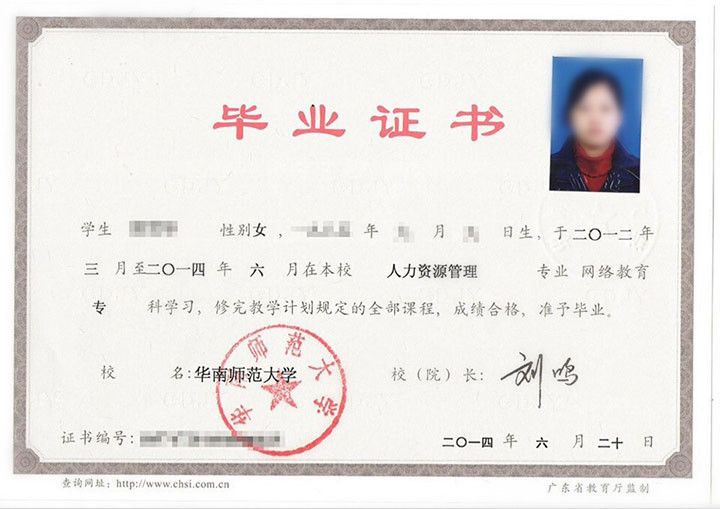 毕业证书
学生 性别女，一 年 月 日生，于二〇一二年
三 月至二〇一四 年 六 月在本校 人力资源管理 专业 网络教育
专 科学习，修完教学计划规定的全部课程，成绩合格，准予毕业。
华南师范大学
校 名:华南师范大学 校（院）长: 刘鸣
证书编号: 二〇一四 年 六 月 二十 日
查询网址: http://www.chsi.com.cn 广东省教育厅监制